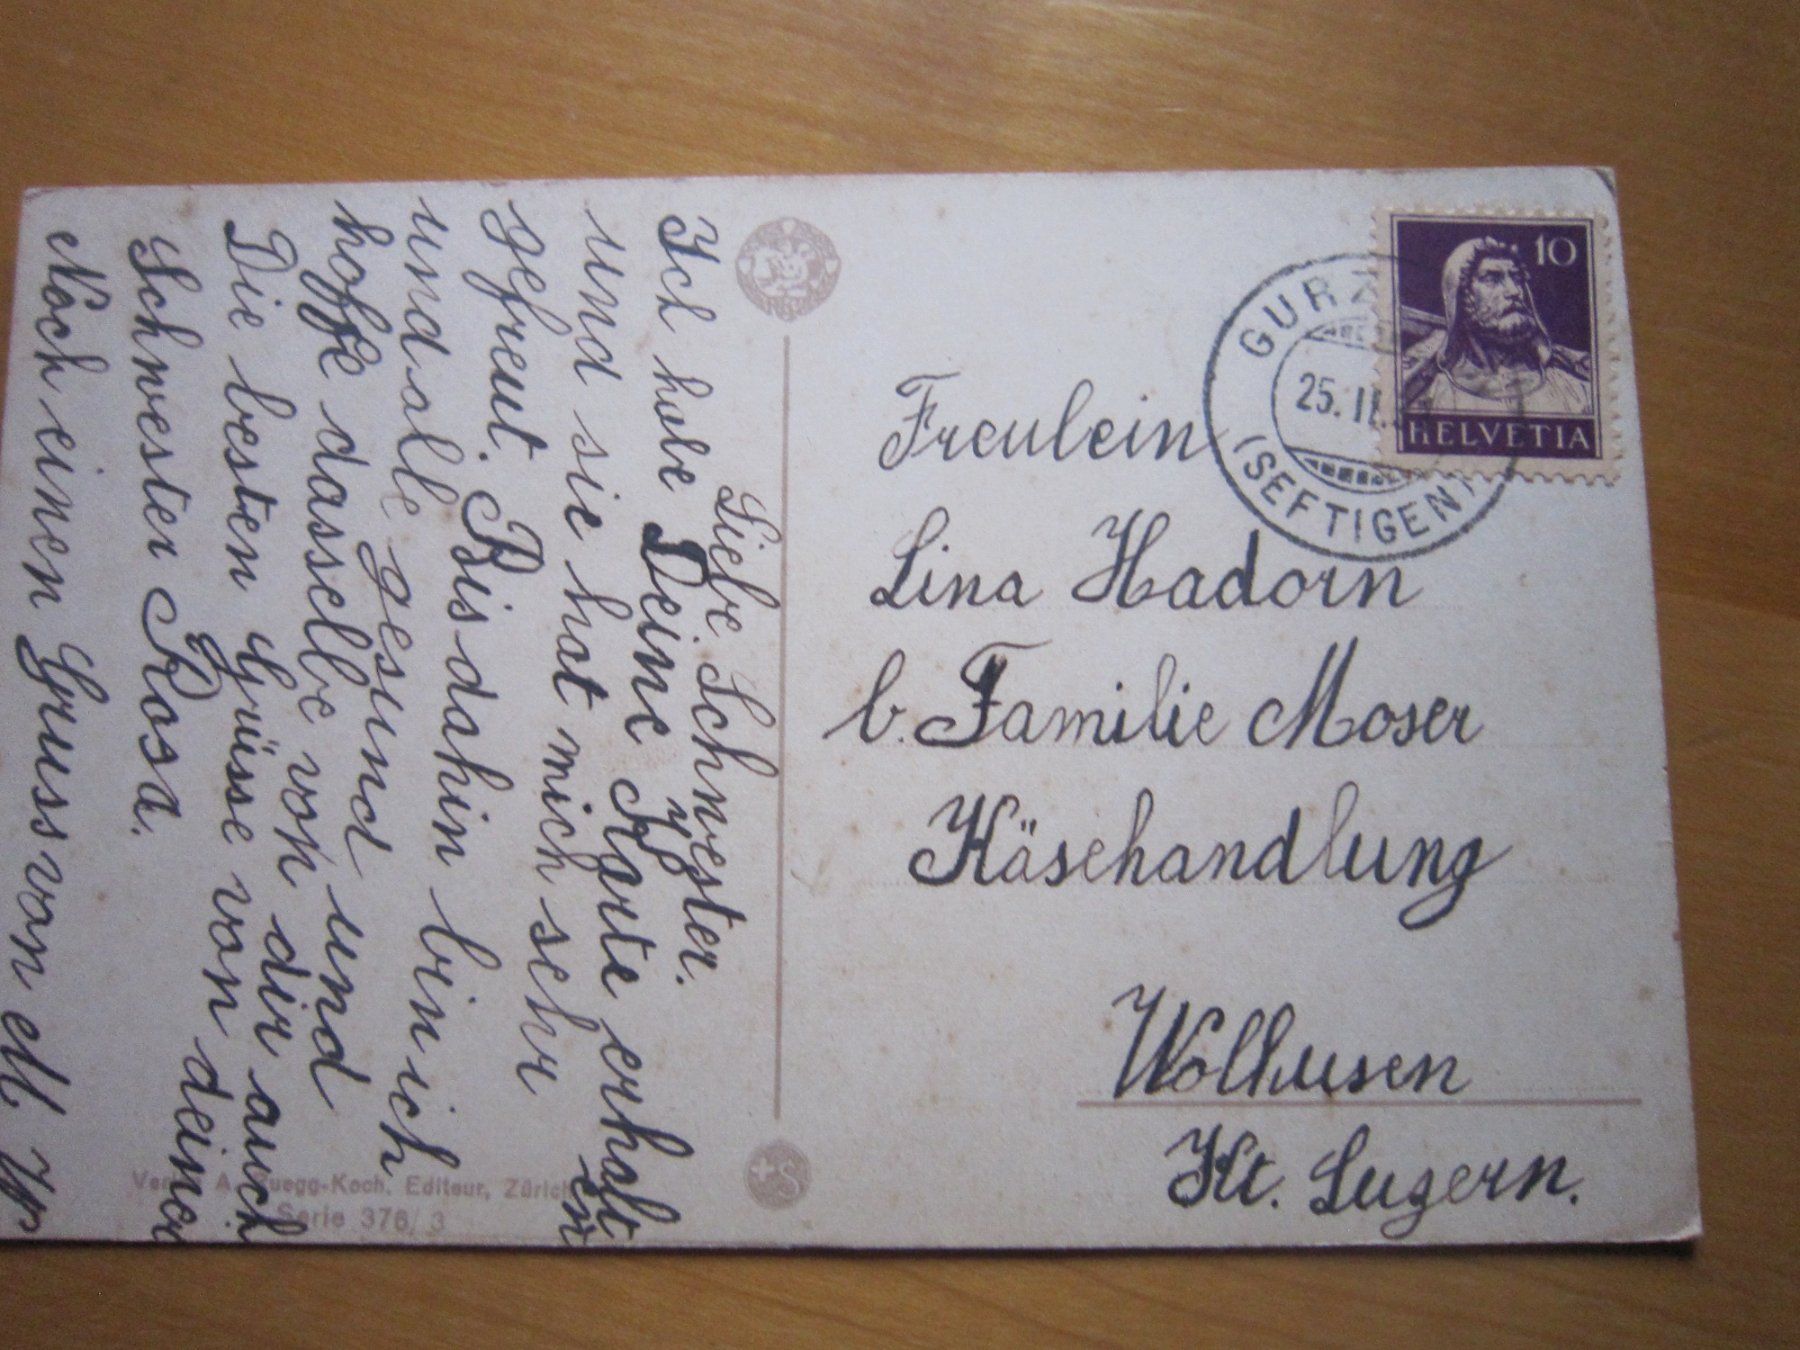 Liebe Schwester.
Ich habe Deine Karte erhalt
en
und sie hat mich sehr
gefreut. Bis dahin bin ich
und alle gesund und
hoffe dasselbe von dir auch
Die besten Grüsse von deiner
Schwester Rosa.
Noch einen Gruss von
A. Ruegg-Koch, Editeur, Zürich
Serie 376/3
10
HELVETIA
25. II.
(SEFTIGEN)
Freulein
Lina Hadorn
b. Familie Moser
Käsehandlung
Wolhusen
Kt. Luzern.